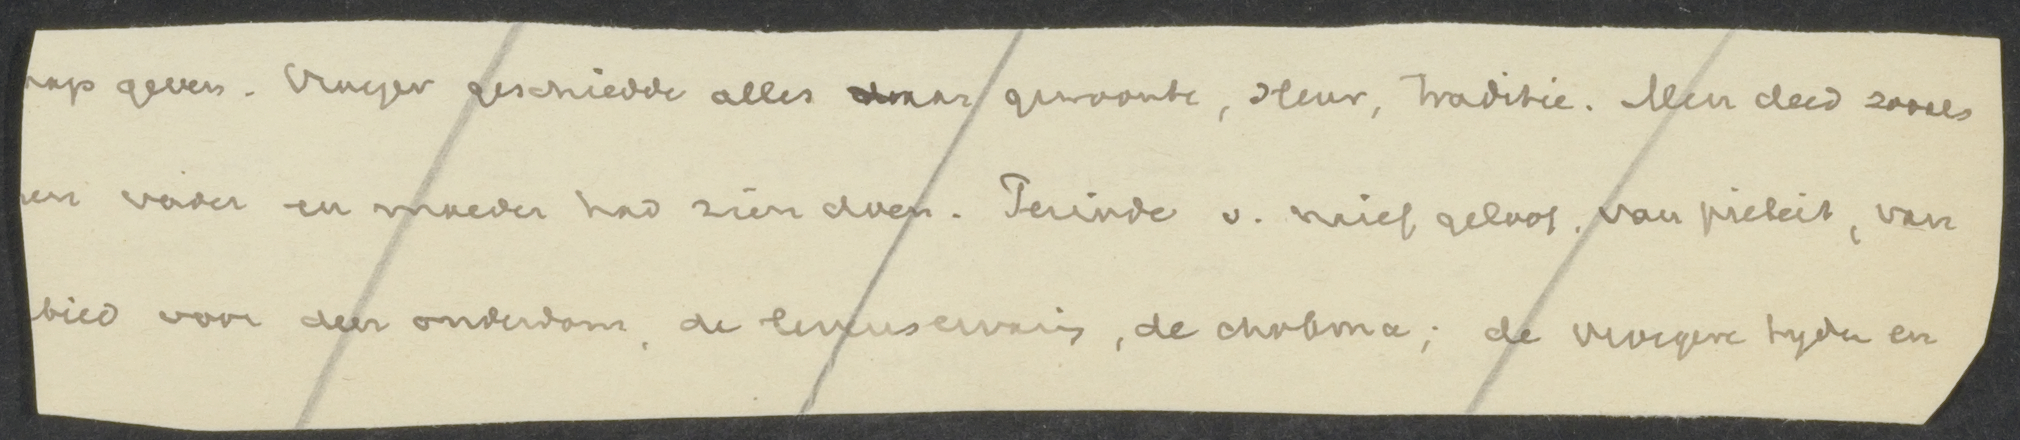 ap geven. Vroeger geschiedde alles naar gewoonte, sleur, traditie. Men deed zooals
en vader en moeder had zien doen. Periode v. naief geloof, van piëteit, van
bied voor den ouderdom, de levenservaring, de chobma; de vroegere tyden en